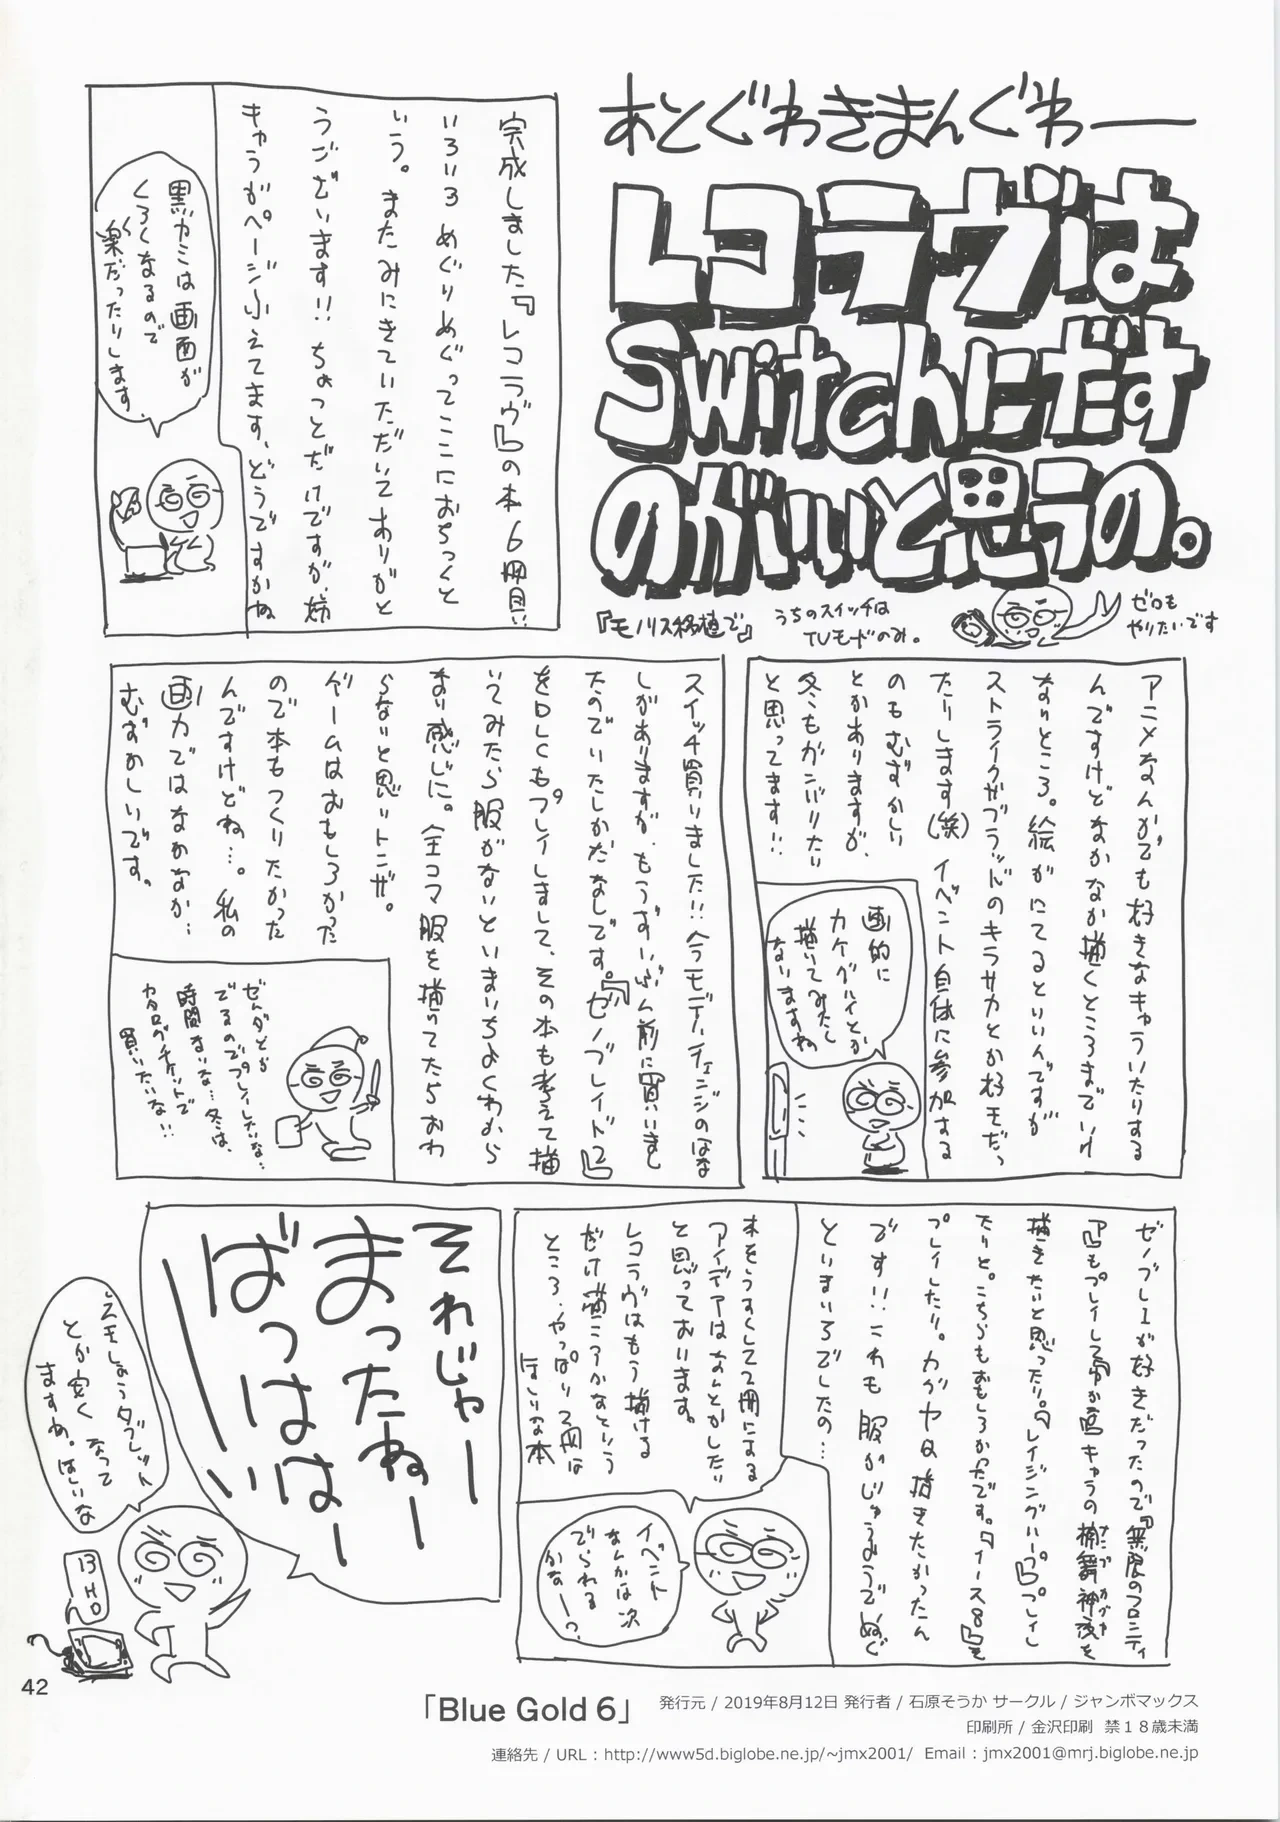 あとぐわきまんぐわー
レコラヴは
Switchにだす
のがいいと思うの。
『モノリス移植で』
うちのスイッチは
TVモードのみ。
ゼロも
やりたいです
完成しました『レコラヴ』の本6冊目い
いろいろめぐりめぐってここにおちつくと
いう。またみにきていただいてありがと
うございます!!ちょっとだけですが、姉
キャラがページふえてます、どうですかね
黒ガミは画面が
くろくなるので
楽だったりします
アニメなんかでも好きなキャラいたりする
んですけどなかなか描くところまでいけ
ないところ。絵がにてるといいんですが
ストライクザブラッドのキラサカとか好きだっ
たりします(笑)イベント自体に参加する
のもむずかしい
とかありますが、
冬もガンバリたい
と思ってます!!
画的に
カケグルイとか
描いてみたし
ないますね
スイッチ買いました!!今モデルチェンジのはな
しがありますが、もうずいぶん前に買いまし
たのでいたしかたなしです。『ゼノブレイド2』
をDLCもプレイしまして、その本も考えて描
いてみたら服がないといまいちよくわから
ない感じに。全コマ服を描いてたらおわ
らないと思ットンザ。
ゲームはおもしろかった
ので本もつくりたかった
んですけどね…。私の
画力ではなかなか…
むずかしいです。
ゼルダとか
でるのでプレイしたいな…
時間ないな…冬は、
カタログチケットで
買いたいな!!
ゼノブレ1が好きだったので『無限のフロンティ
ア』もプレイして、ゆか宮キャラの楠舞神夜を
ナンブ カグヤ
描きたいと思ったり。『レイジングループ』プレイし
たりと。こちらもおもしろかったです。『イース8』を
プレイしたり。カグヤは描きたかったん
です!!これも服がじゅうようでぬぐ
といまいちでしたの…
本をうすくして2冊にする
アイデアはなんとかしたい
と思っております。
レコラヴはもう描ける
だけ描こうかなという
ところ、やっぱり2冊は
ほしいな本
イベント
なんかは次
でられる
かなー?
それじゃー
まったねー
ばっはは
ーい
エモしょうタブレット
とか安くなって
ますね。ほしいな
13
HD
42
「Blue Gold 6」
発行元 / 2019年8月12日 発行者 / 石原そうか サークル / ジャンボマックス
印刷所 / 金沢印刷 禁18歳未満
連絡先 / URL : http://www5d.biglobe.ne.jp/~jmx2001/ Email : jmx2001@mrj.biglobe.ne.jp